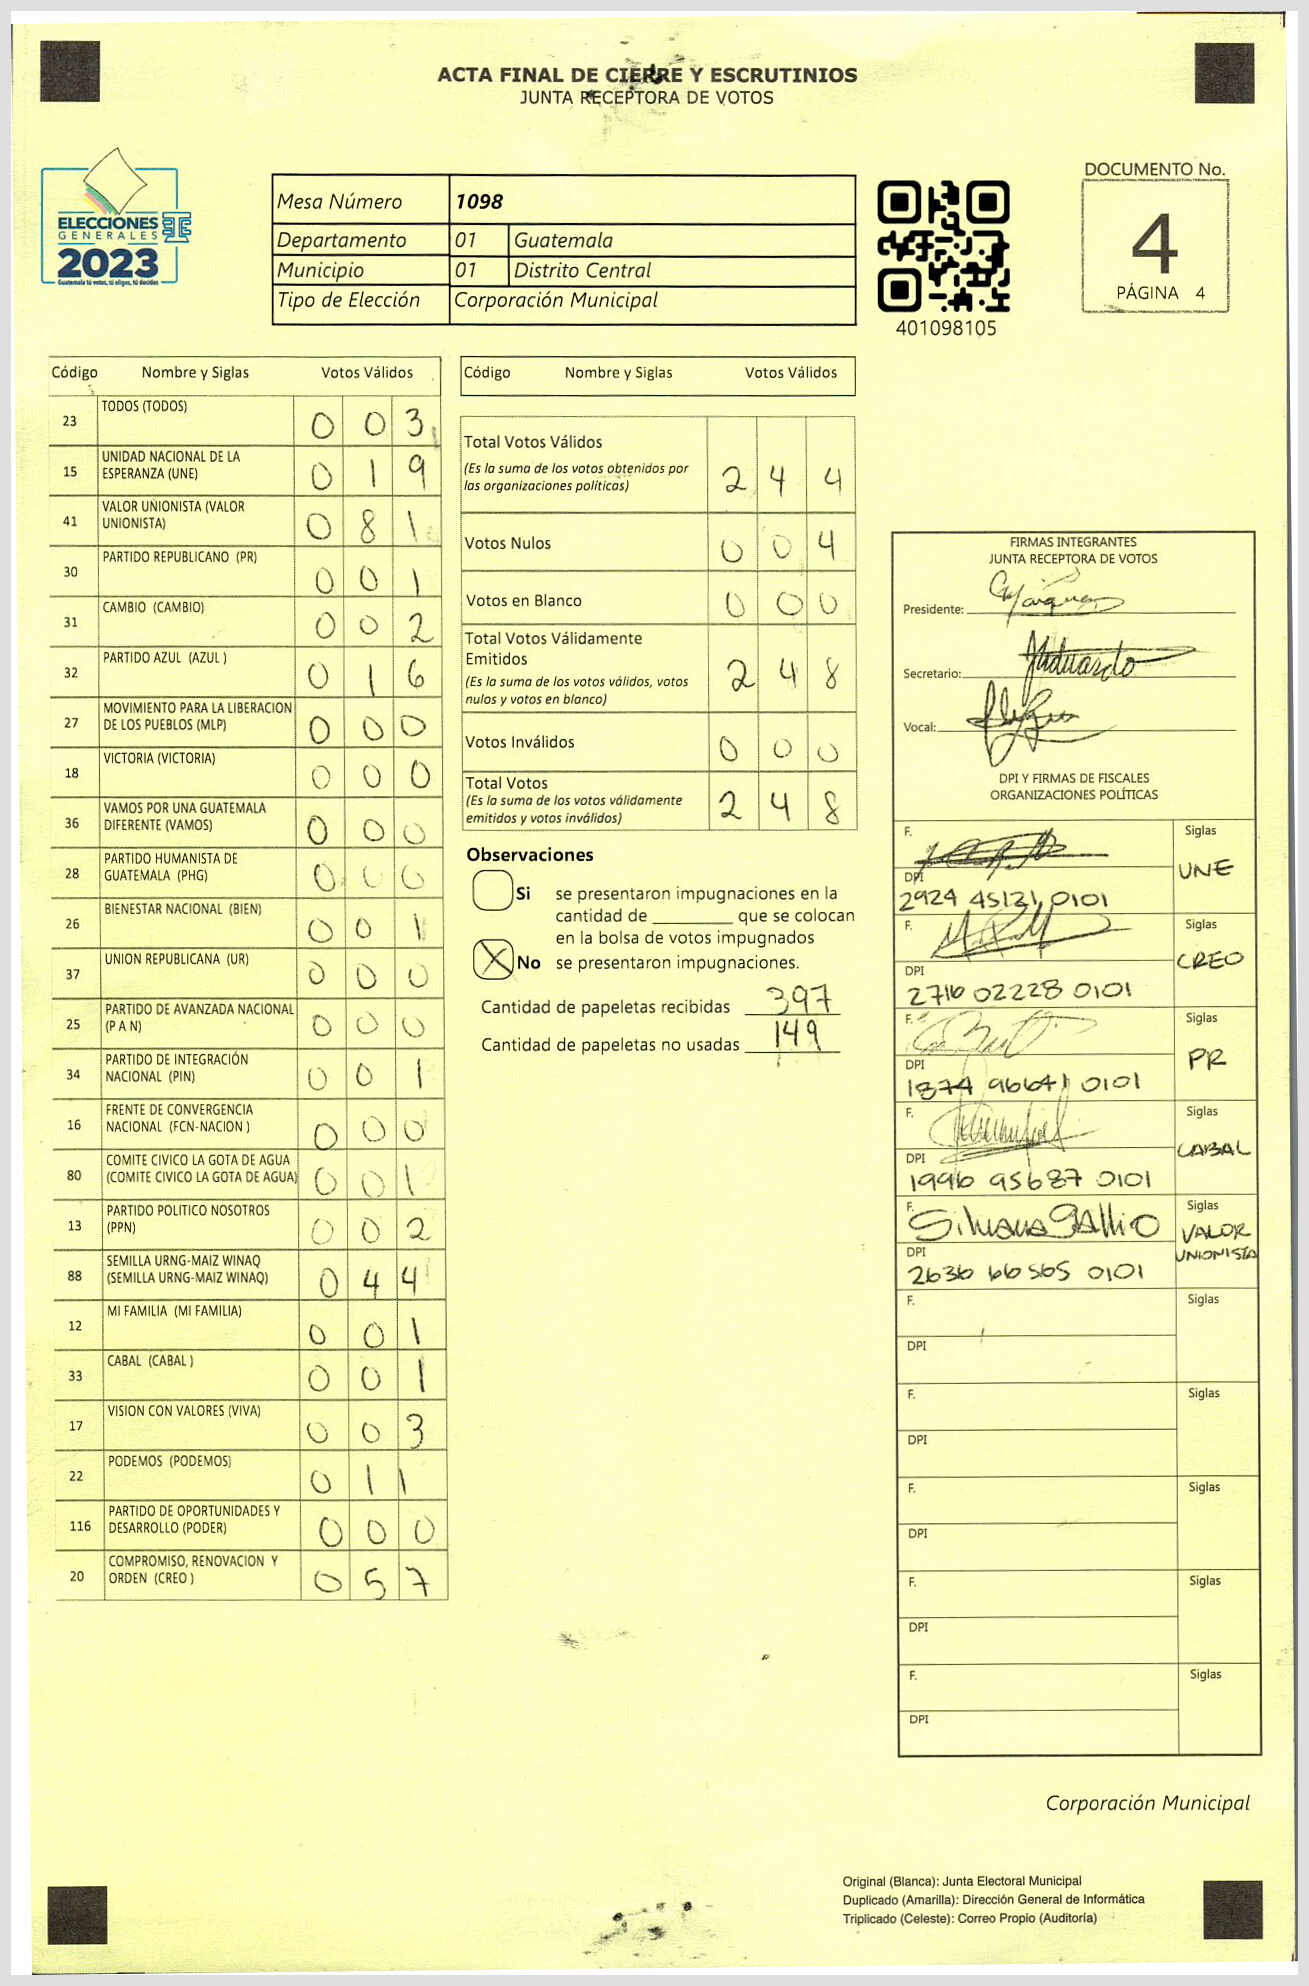 ACTA FINAL DE CIERRE Y ESCRUTINIOS
JUNTA RECEPTORA DE VOTOS
ELECCIONES
GENERALES
2023
Guatemala tú votas, tú eliges, tú decides
Mesa Número 1098
Departamento 01 Guatemala
Municipio 01 Distrito Central
Tipo de Elección Corporación Municipal
401098105
DOCUMENTO No.
4
PÁGINA 4
Código Nombre y Siglas Votos Válidos
23 TODOS (TODOS) 0 0 3
15 UNIDAD NACIONAL DE LA
ESPERANZA (UNE) 0 1 9
41 VALOR UNIONISTA (VALOR
UNIONISTA) 0 8 1
30 PARTIDO REPUBLICANO (PR) 0 0 1
31 CAMBIO (CAMBIO) 0 0 2
32 PARTIDO AZUL (AZUL ) 0 1 6
27 MOVIMIENTO PARA LA LIBERACION
DE LOS PUEBLOS (MLP) 0 0 0
18 VICTORIA (VICTORIA) 0 0 0
36 VAMOS POR UNA GUATEMALA
DIFERENTE (VAMOS) 0 0 0
28 PARTIDO HUMANISTA DE
GUATEMALA (PHG) 0 0 0
26 BIENESTAR NACIONAL (BIEN) 0 0 1
37 UNION REPUBLICANA (UR) 0 0 0
25 PARTIDO DE AVANZADA NACIONAL
(P A N) 0 0 0
34 PARTIDO DE INTEGRACIÓN
NACIONAL (PIN) 0 0 1
16 FRENTE DE CONVERGENCIA
NACIONAL (FCN-NACION ) 0 0 0
80 COMITE CIVICO LA GOTA DE AGUA
(COMITE CIVICO LA GOTA DE AGUA) 0 0 1
13 PARTIDO POLITICO NOSOTROS
(PPN) 0 0 2
88 SEMILLA URNG-MAIZ WINAQ
(SEMILLA URNG-MAIZ WINAQ) 0 4 4
12 MI FAMILIA (MI FAMILIA) 0 0 1
33 CABAL (CABAL ) 0 0 1
17 VISION CON VALORES (VIVA) 0 0 3
22 PODEMOS (PODEMOS) 0 1 1
116 PARTIDO DE OPORTUNIDADES Y
DESARROLLO (PODER) 0 0 0
20 COMPROMISO, RENOVACION Y
ORDEN (CREO ) 0 5 7
Código Nombre y Siglas Votos Válidos
Total Votos Válidos
(Es la suma de los votos obtenidos por
las organizaciones políticas) 2 4 4
Votos Nulos 0 0 4
Votos en Blanco 0 0 0
Total Votos Válidamente
Emitidos
(Es la suma de los votos válidos, votos
nulos y votos en blanco) 2 4 8
Votos Inválidos 0 0 0
Total Votos
(Es la suma de los votos válidamente
emitidos y votos inválidos) 2 4 8
Observaciones
Si se presentaron impugnaciones en la
cantidad de ________ que se colocan
en la bolsa de votos impugnados
No se presentaron impugnaciones.
Cantidad de papeletas recibidas 397
Cantidad de papeletas no usadas 149
FIRMAS INTEGRANTES
JUNTA RECEPTORA DE VOTOS
Presidente:
Secretario:
Vocal:
DPI Y FIRMAS DE FISCALES
ORGANIZACIONES POLÍTICAS
F. Siglas
UNE
DPI
2924 45131 0101
F. Siglas
CREO
DPI
2716 02228 0101
F. Siglas
PR
DPI
1874 96641 0101
F. Siglas
CABAL
DPI
1996 95687 0101
F. Silvana Gallio Siglas
VALOR
UNIONISTA
DPI
2636 66565 0101
F. Siglas
DPI
F. Siglas
DPI
F. Siglas
DPI
F. Siglas
DPI
F. Siglas
DPI
Corporación Municipal
Original (Blanca): Junta Electoral Municipal
Duplicado (Amarilla): Dirección General de Informática
Triplicado (Celeste): Correo Propio (Auditoría)